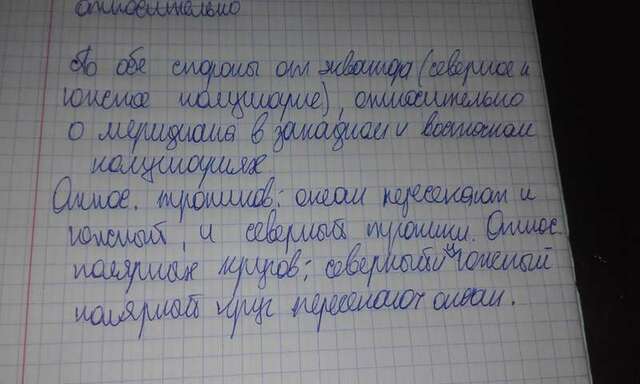 относительно
По обе стороны от экватора (северное и
южное полушарие), относительно
0 меридиана в западном и восточном
полушариях
Относ. тропиков: океан пересекают и
южный, и северный тропики. Относ.
полярных кругов: северный и южный
полярный круг пересекают океан.